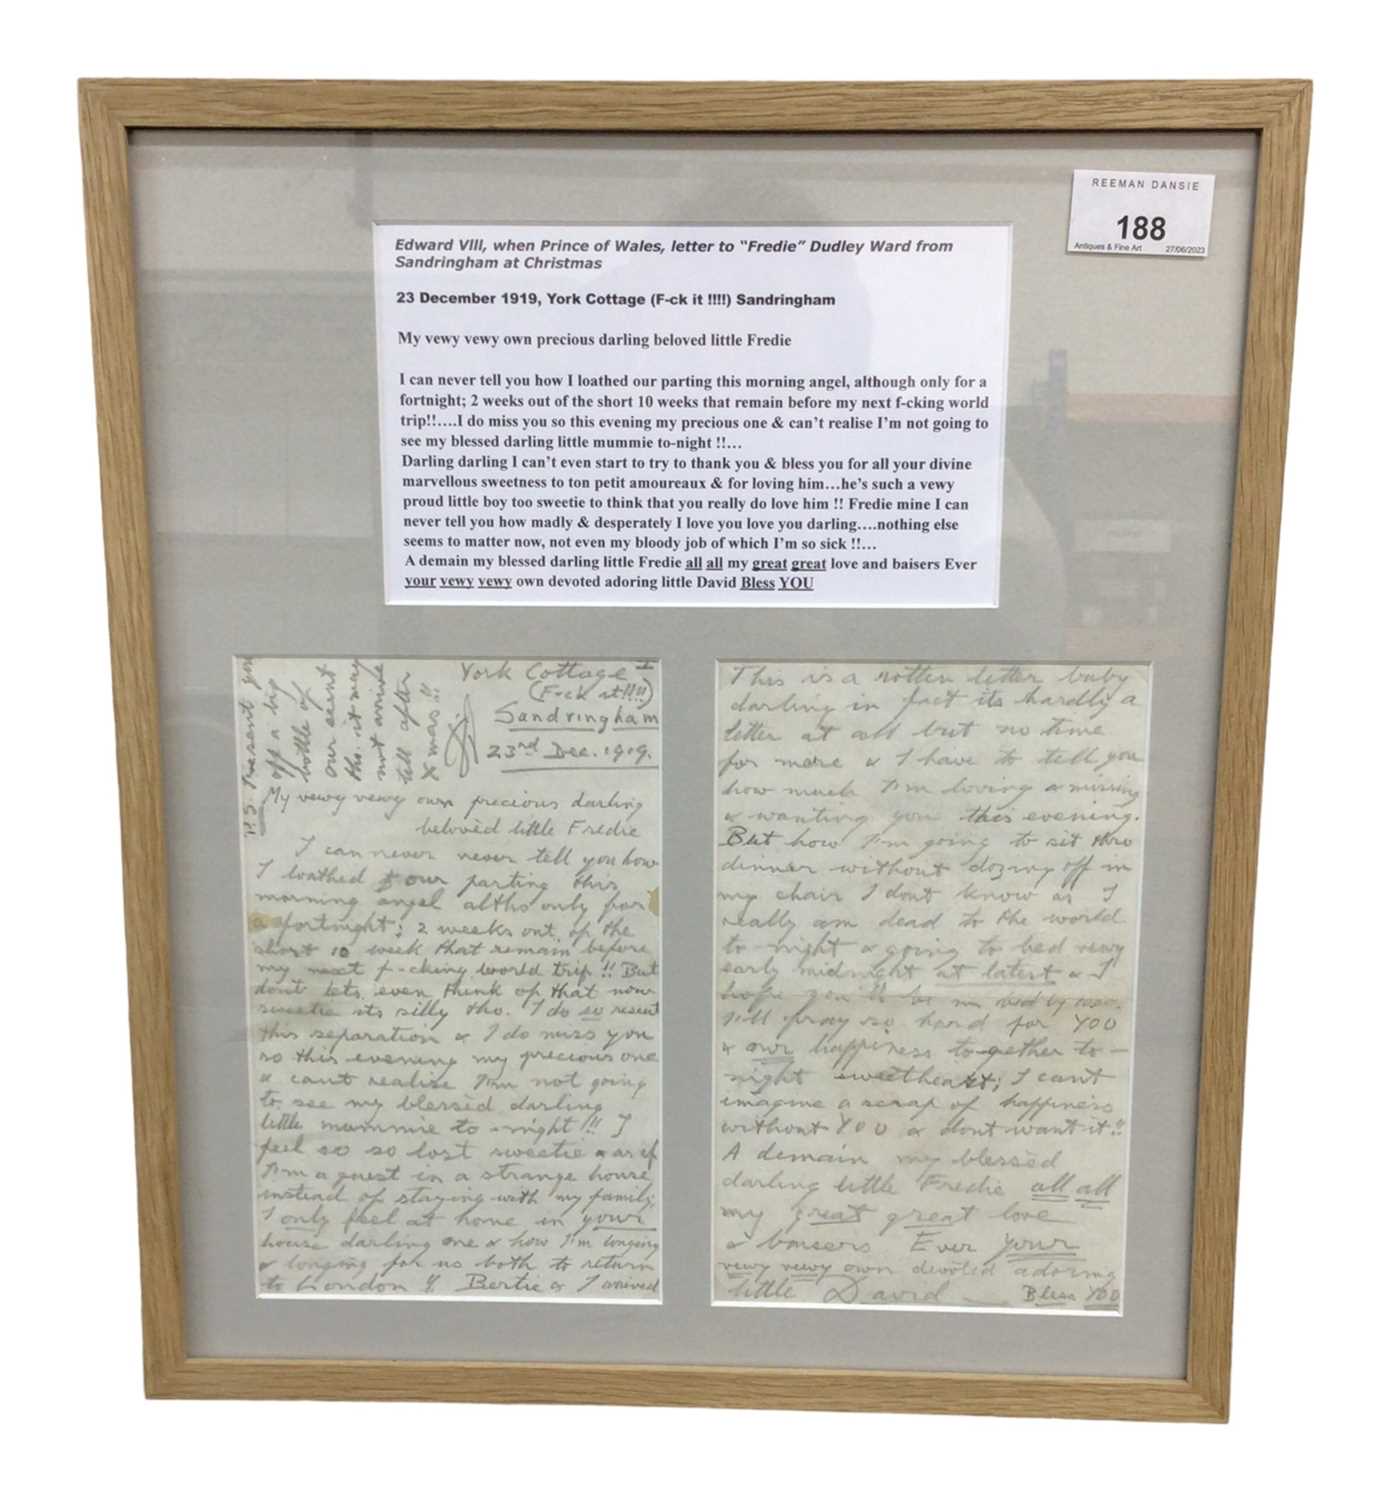 REEMAN DANSIE
188
Antiques & Fine Art 27/06/2023
Edward VIII, when Prince of Wales, letter to "Fredie" Dudley Ward from
Sandringham at Christmas
23 December 1919, York Cottage (F-ck it !!!!) Sandringham
My vewy vewy own precious darling beloved little Fredie
I can never tell you how I loathed our parting this morning angel, although only for a
fortnight; 2 weeks out of the short 10 weeks that remain before my next f-cking world
trip!!....I do miss you so this evening my precious one & can't realise I'm not going to
see my blessed darling little mummie to-night !!...
Darling darling I can't even start to try to thank you & bless you for all your divine
marvellous sweetness to ton petit amoureaux & for loving him...he's such a vewy
proud little boy too sweetie to think that you really do love him !! Fredie mine I can
never tell you how madly & desperately I love you love you darling....nothing else
seems to matter now, not even my bloody job of which I'm so sick !!...
A demain my blessed darling little Fredie all all my great great love and baisers Ever
your vewy vewy own devoted adoring little David Bless YOU
P.S. Present you
off a big
bottle of
our scent
tho. it may
not arrive
till after
Xmas!!
York Cottage I
(F-ck it!!!!)
Sandringham
23rd Dec. 1919.
My vewy vewy own precious darling
beloved little Fredie
I can never never tell you how
I loathed our parting this
morning angel altho only for
a fortnight; 2 weeks out of the
short 10 week that remain before
my next f-cking world trip!! But
don't lets even think of that now
sweetie its silly tho. I do so resent
this separation & I do miss you
so this evening my precious one
& cant realise I'm not going
to see my blessed darling
little mummie to-night!! I
feel so so lost sweetie & as if
I'm a guest in a strange house
instead of staying with my family;
I only feel at home in your
house darling one & how I'm longing
& longing for us both to return
to London !! Bertie & I arrived
This is a rotten letter baby
darling in fact its hardly a
letter at all but no time
for more & I have to tell you
how much I'm loving & missing
& wanting you this evening.
But how I'm going to sit thro
dinner without dozing off in
my chair I dont know as I
really am dead to the world
to-night & going to bed vewy
early midnight at latest & I
hope you'll be in bed by
I'll pray so hard for YOU
& our happiness to-gether to-
night sweetheart; I cant
imagine a scrap of happiness
without YOU & dont want it!!
A demain my blessed
darling little Fredie all all
my great great love
& baisers Ever your
vewy vewy own devoted adoring
little David Bless YOU